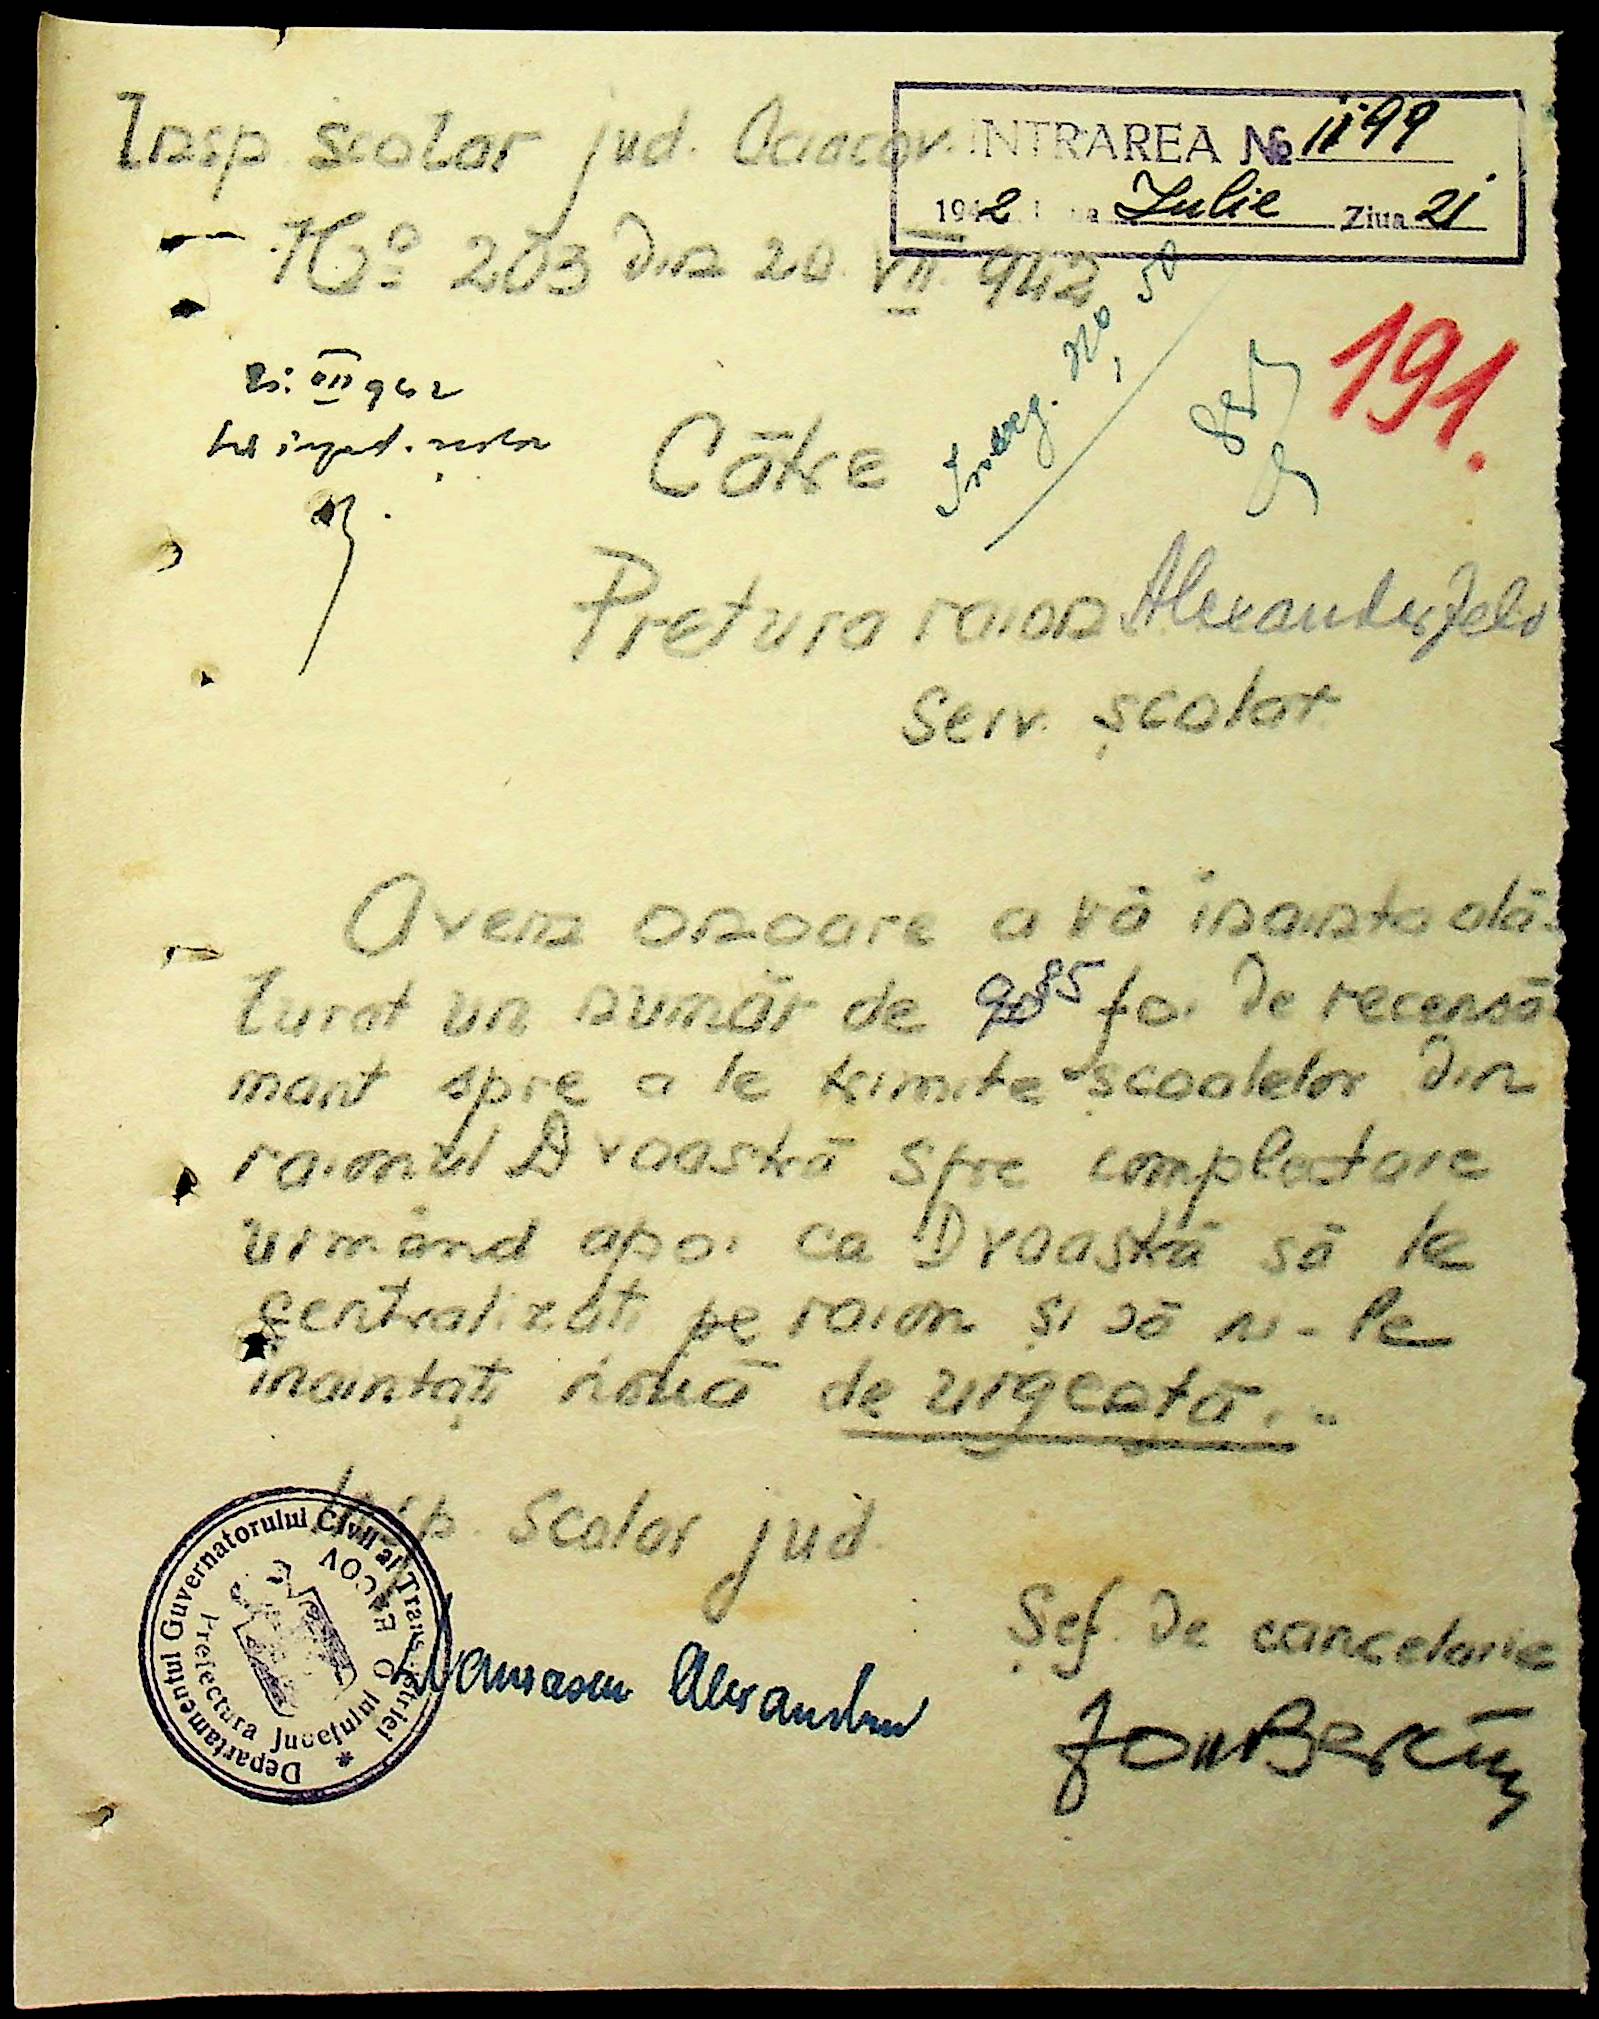 Insp scolar jud. Oceacov.
INTRAREA № 1199
1942 Luna Iulie Ziua 21
No 203 din 20 VII 942
21. VII 942
Înreg. No 50
191.
Către
Pretura raion Alexanderfeld
Serv. școlar
Avem onoare a vă înainta ală-
turat un număr de 85 foi de recensă
mant spre a le trimite școalelor din
raionul Dvoastră spre complectare
urmând apoi ca Dvoastră să le
centralizati pe raion și să ni-le
inaintați nouă de urgență.-
Insp. Scolar jud.
Șef de cancelarie
Alexandru
Ion
Departamentul Guvernatorului Civil al Transnistriei
Prefectura Județului OEACOV